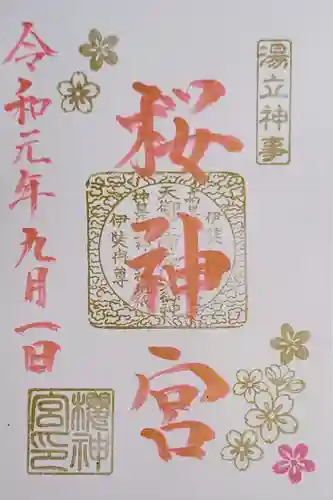 湯立神事
桜神宮
天御中主
伊弉冉尊
令和元年九月一日
櫻神宮印